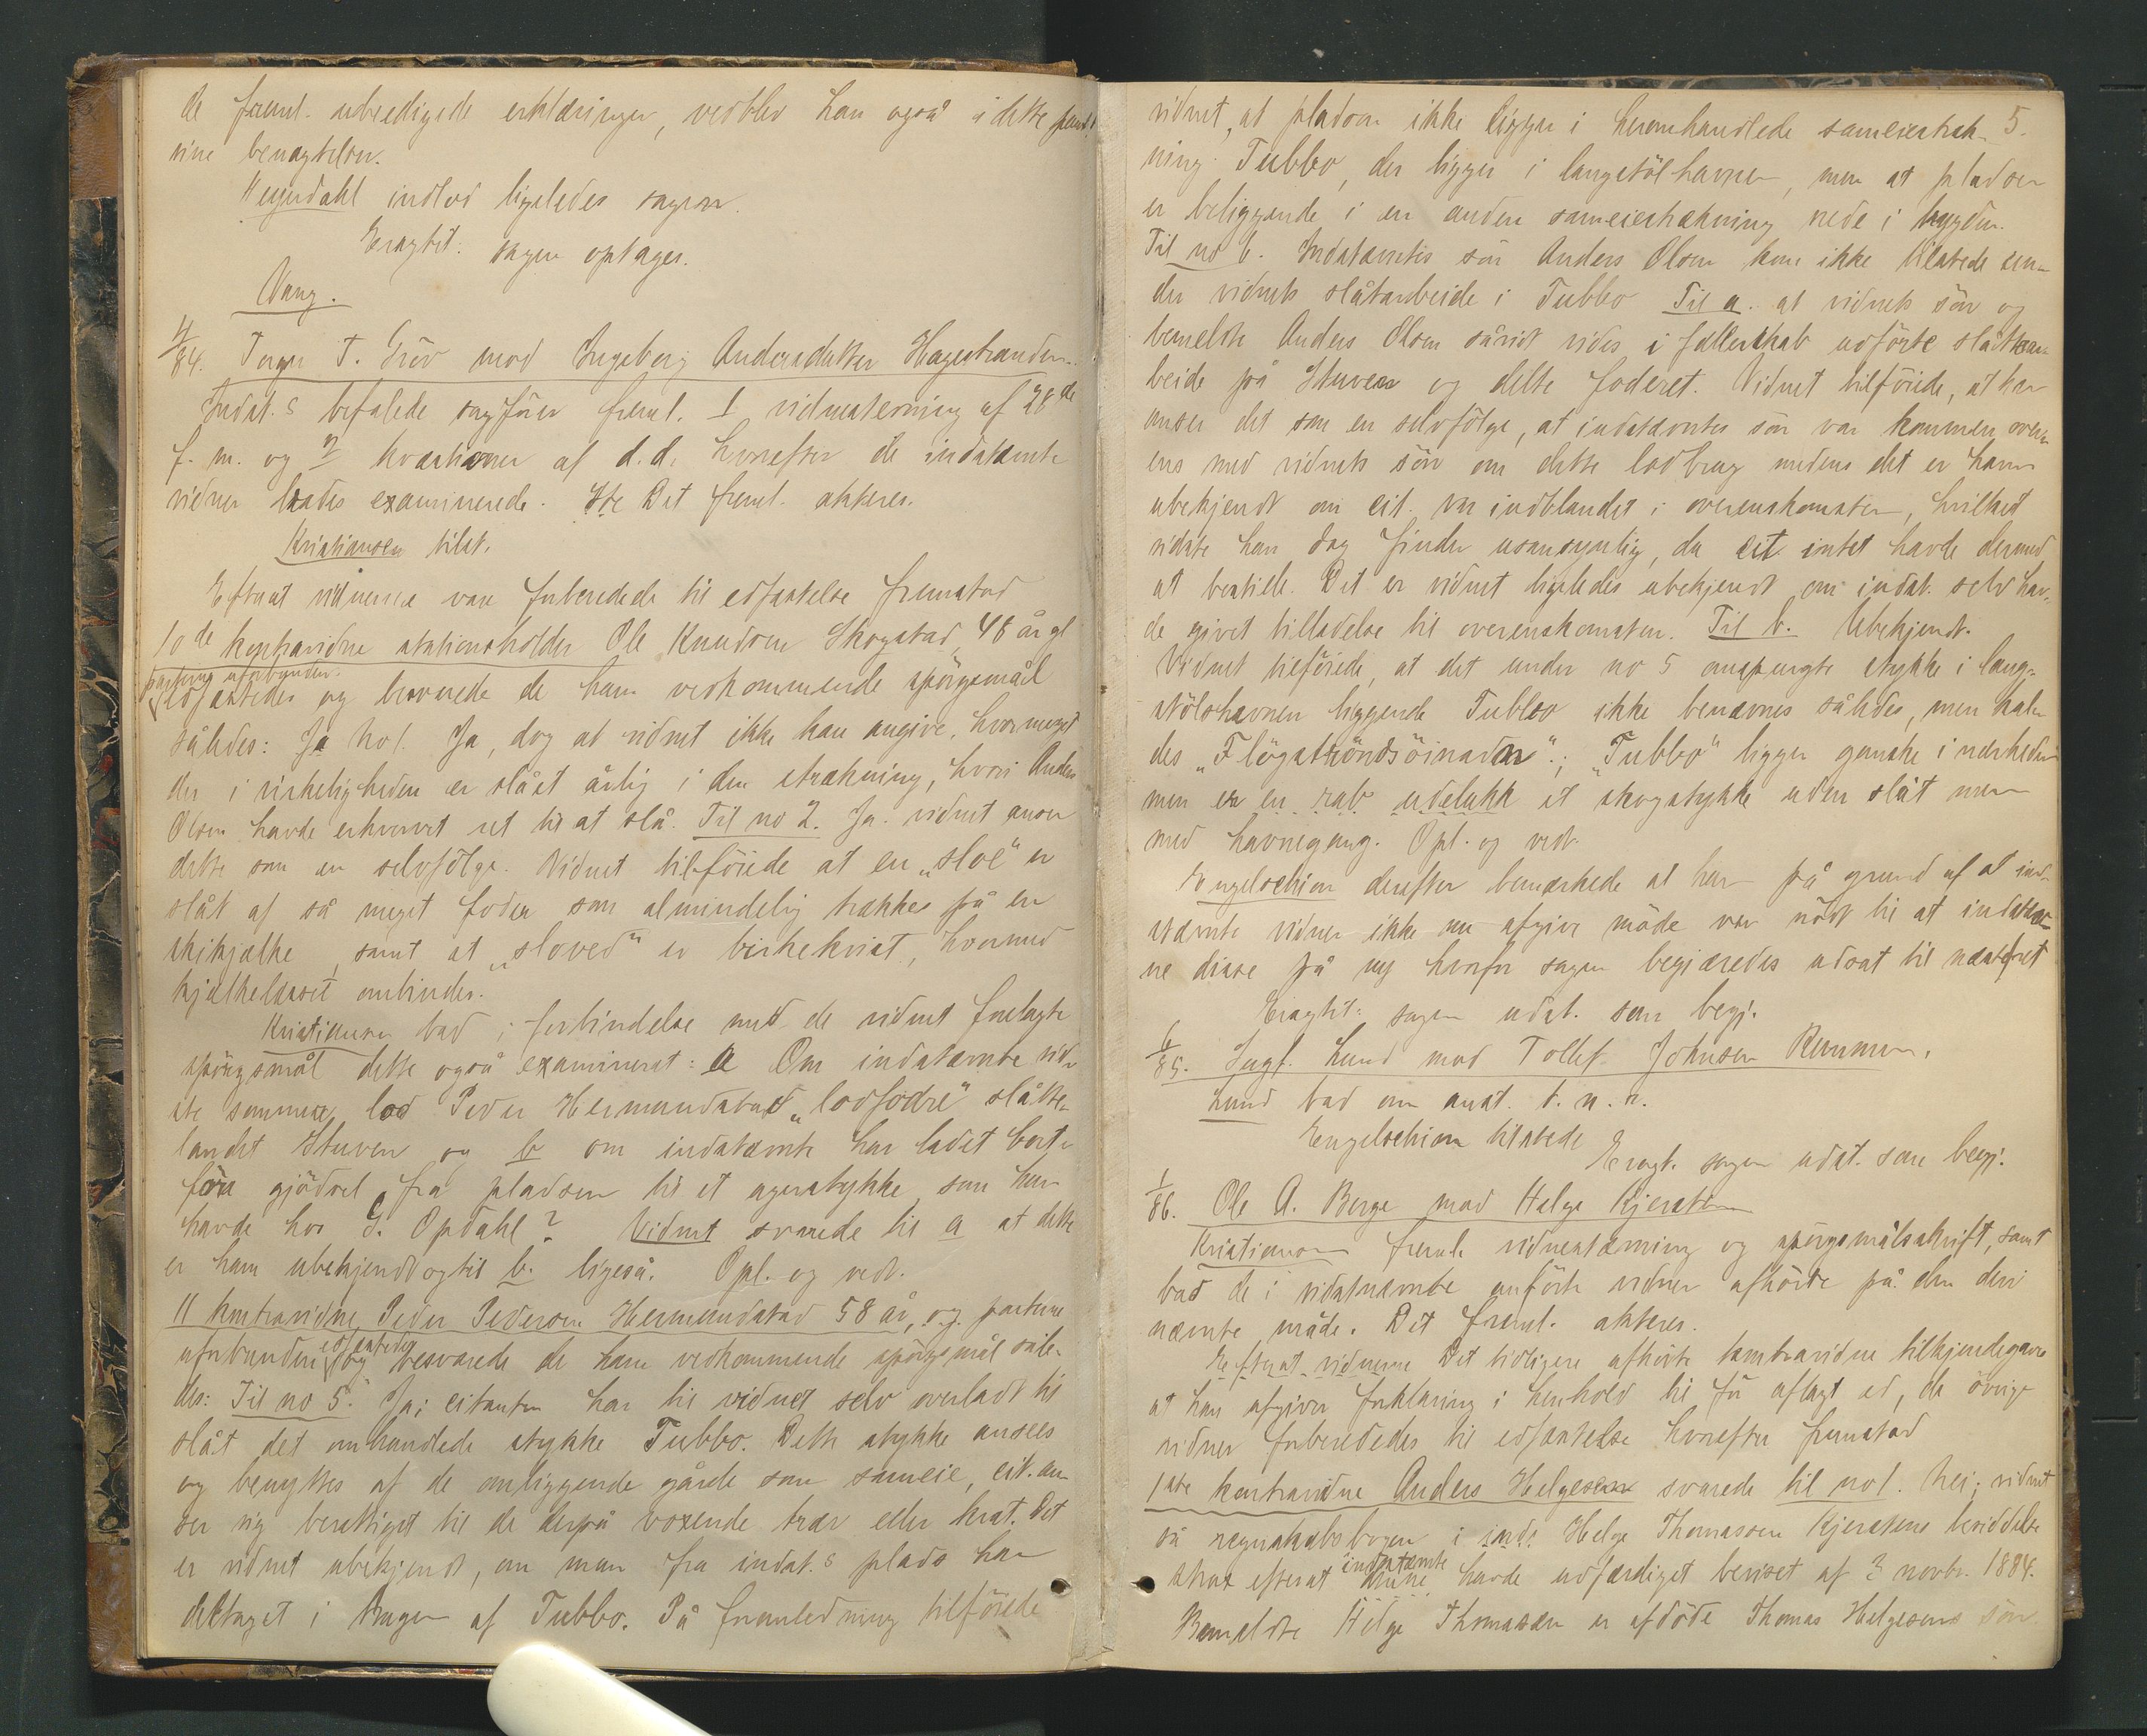 de freml. ubeedigede erklæringer, vedblev han også i dette punkt
sine benægtelser.
Heyerdahl indlod ligeledes sagen.
Eragtet: sagen optages.
Vang.
4/84. Torger T. Gröv mod Ingeborg Andersdatter Hagestranden.
Indst.s befalede sagförer freml. 1 vidnestevning af 28de
f. m. og 2 kvæstioner af d.d. hvorefter de indstevnte
vidner bades examinerede. Det freml. akteres.
Kristiansen tilst.
Efterat vidnerne vare forberedede til edfæstelse fremstod
10de kontravidne stationsholder Ole Knudsen Skogstad, 48 år gl
parterne uforbunden.
edfæstedes og besvarede de ham vedkommende spörgsmål
således: Ja No 1. Ja, dog at vidnet ikke kan angive, hvormeget
der i virkeligheden er slået årlig i den strækning, hvori Anders
Olsen havde erhvervet ret til at slå. Til no 2. Ja. vidnet anser
dette som en selvfölge. Vidnet tilföiede at en „sloe" er
slåt af så meget foder som almindelig trækkes på en
skikjælke, samt at „sloved" er birkekvist, hvormed
kjælkelæsset ombindes.
Kristiansen bad i forbindelse med de vidnet forelagte
spörgsmål dette også examineret: a Om indstævnte sid-
ste sommer lod Peder Hermundstad „lodfodre" slåtte-
landet Stuven og b om indstævnte har ladet bort-
före gjödsel fra pladsen til et agerstykke som han
havde hos G. Opdahl? Vidnet svarede til a at dette
er ham ubekjendt og til b. ligeså. Opl. og vedt.
11 kontravidne Peder Pedersen Hermundstad 58 år, o.g. parterne
uforbunden edfæstedes og besvarede de ham vedkommende spörgsmål såle-
des: Til no 5. Ja; citanten har til vidnet selv overladt til
slåt det omhandlede stykke Tubbo. Dette stykke ansees
og benyttes af de omliggende gårde som sameie, cit. an-
ser sig berettiget til de derpå voxende trær eller krat. Det
er vidnet ubekjendt, om man fra indst.s plads har
deltaget i brugen af Tubbo. På foranledning tilföiede
5.
vidnet, at pladsen ikke ligger i heromhandlede sameiestræk-
ning Tubbo, der ligger i langstölhavnen, men at pladsen
er beliggende i en anden sameiestrækning nede i bygden.
Til no 6. Indstævntes sön Anders Olsen kom ikke tilstede un-
der vidnets slåtarbeide i Tubbo Til a. at vidnets sön og
bemeldte Anders Olsen såvidt vides i fællesskab udförte slåttear-
beide på Stuven og delte foderet. Vidnet tilföiede, at han
anser det som en selvfölge, at indstævntes sön var kommen over-
ens med vidnets sön om dette lodbrug medens det er ham
ubekjendt om cit. var indblandet i overenskomsten, hvilket
sidste han dog finder usansynlig, da cit intet havde dermed
at bestille. Det er vidnet ligeledes ubekjendt om indst. selv hav-
de givet tilladelse til overenskomsten. Til b. Ubekjendt.
Vidnet tilföiede, at det under no 5 omspurgte stykke i lang-
stölshavnen liggende Tubbo ikke benævnes således, men kal-
des „Flögströndsöinaden"; „Tubbo" ligger ganske i nærheden
men er en udelukk et skogstykke uden slåt men
med havnegang. Opl. og vedt.
Engelschion derefter bemærkede at han på grund af at ind-
stævnte vidner ikke nu afgive möde var nödt til at indstæv-
ne disse på ny hvorfor sagen begjæredes udsat til næste ret
Eragtet: sagen udst. som begj.
6/85. Sagf. Lund mod Tollef Johnsen Remmen.
Lund bad om anst. t. n. r.
Engelschion tilstede
Eragt. sagen udst. som begj.
1/86. Ole A. Berge mod Helge Kjersten
Kristiansen freml. vidnestævning og spörgsmålsskrift, samt
bad de i vidstævnte anförte vidner afhörte på den deri
nævnte måde. Det freml. akteres.
Efterat vidnerne Det tidligere afhörte kontravidne tilkjendegave
at han afgiver forklaring i henhold til för aflagt ed, de övrige
vidner forberededes til edfæstelse hvorefter fremstod
1ste kontravidne Anders Helgesen svarede til no 1. Nei; vidnet
så regnskabsbogen i inds. Helge Thomassen Kjerstens besiddelse
strax efterat denne indstæmte havde udfærdiget beviset af 3 novbr. 1884.
Bemeldte Helge Thomassen er afdöde Thomas Helgesens sön